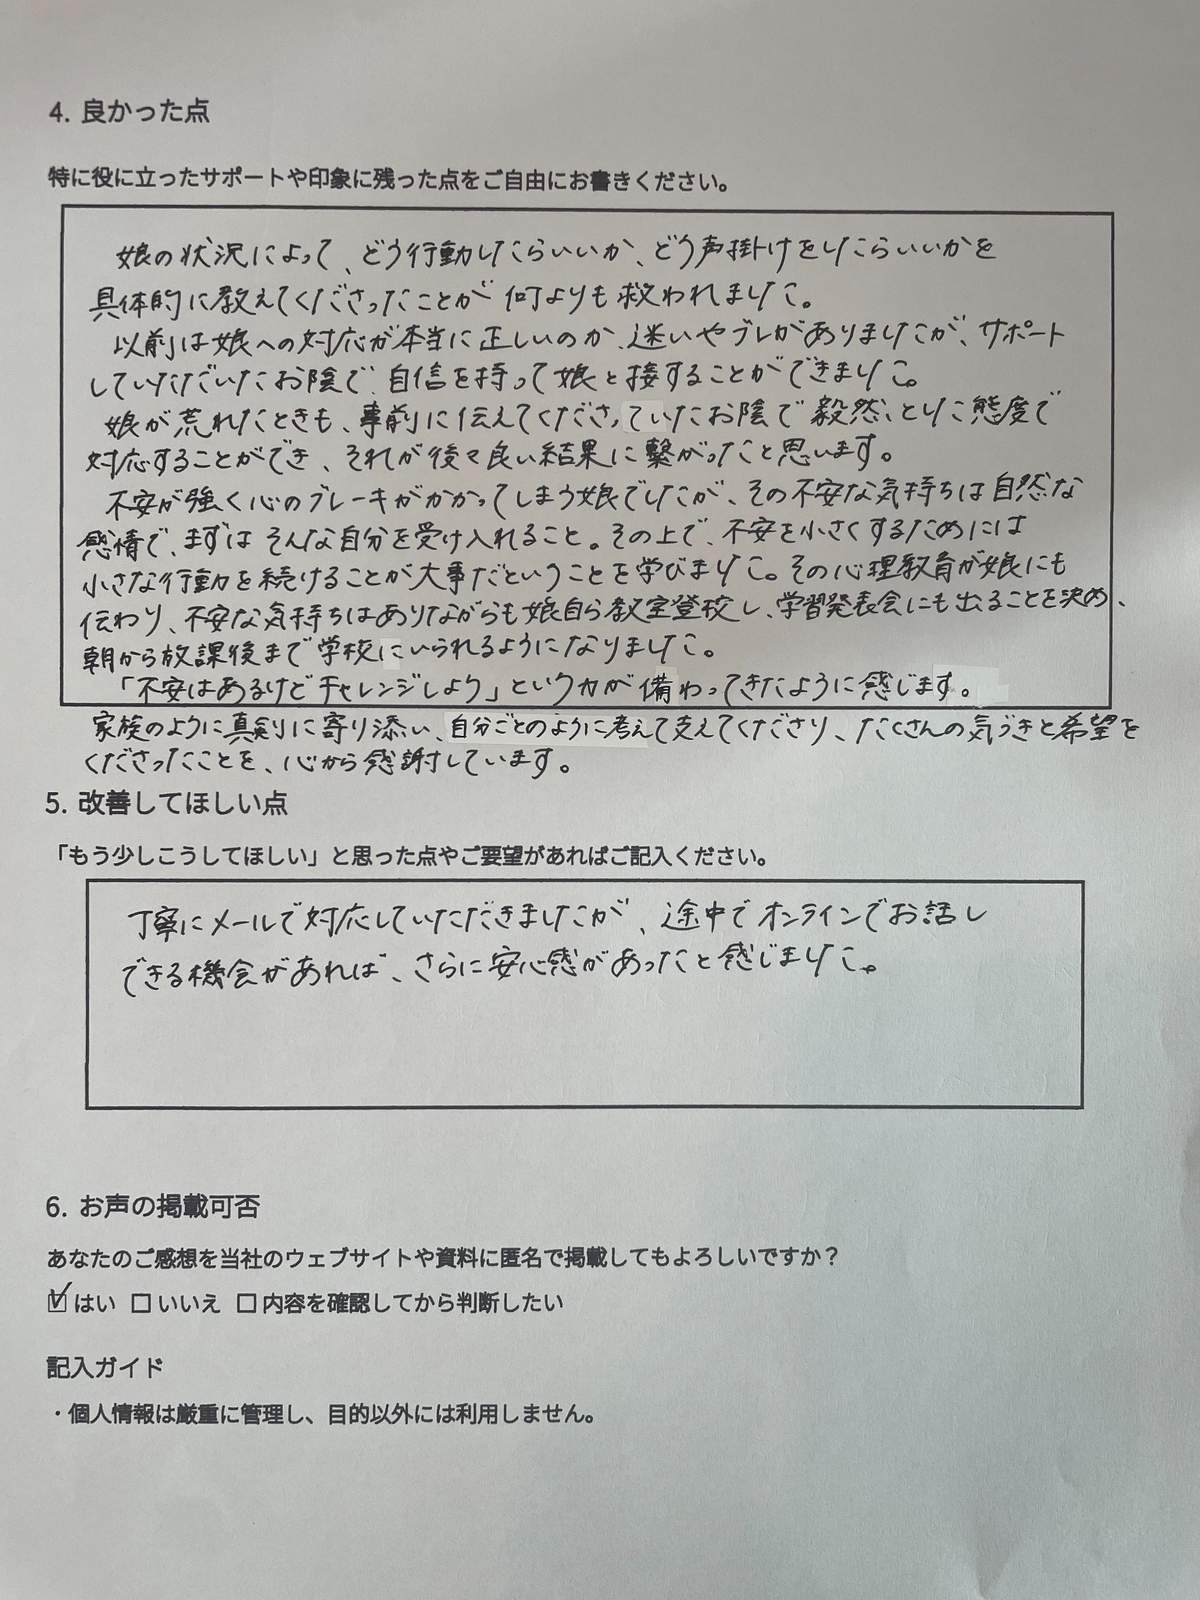 4. 良かった点
特に役に立ったサポートや印象に残った点をご自由にお書きください。
娘の状況によって、どう行動したらいいか、どう声掛けをしたらいいかを
具体的に教えてくださったことが何よりも救われました。
以前は娘への対応が本当に正しいのか、迷いやブレがありましたが、サポート
していただいたお陰で、自信を持って娘と接することができました。
娘が荒れたときも、事前に伝えてくださっていたお陰で毅然とした態度で
対応することができ、それが後々良い結果に繋がったと思います。
不安が強く心のブレーキがかかってしまう娘でしたが、その不安な気持ちは自然な
感情で、まずはそんな自分を受け入れること。その上で、不安を小さくするためには
小さな行動を続けることが大事だということを学びました。その心理教育が娘にも
伝わり、不安な気持ちはありながらも娘自ら教室登校し、学習発表会にも出ることを決め、
朝から放課後まで学校にいられるようになりました。
「不安はあるけどチャレンジしよう」という力が備わってきたように感じます。
家族のように真剣に寄り添い、自分ごとのように考えて支えてくださり、たくさんの気づきと希望を
くださったことを、心から感謝しています。
5. 改善してほしい点
「もう少しこうしてほしい」と思った点やご要望があればご記入ください。
丁寧にメールで対応していただきましたが、途中でオンラインでお話し
できる機会があれば、さらに安心感があったと感じました。
6. お声の掲載可否
あなたのご感想を当社のウェブサイトや資料に匿名で掲載してもよろしいですか？
☑ はい ☐ いいえ ☐ 内容を確認してから判断したい
記入ガイド
・個人情報は厳重に管理し、目的以外には利用しません。